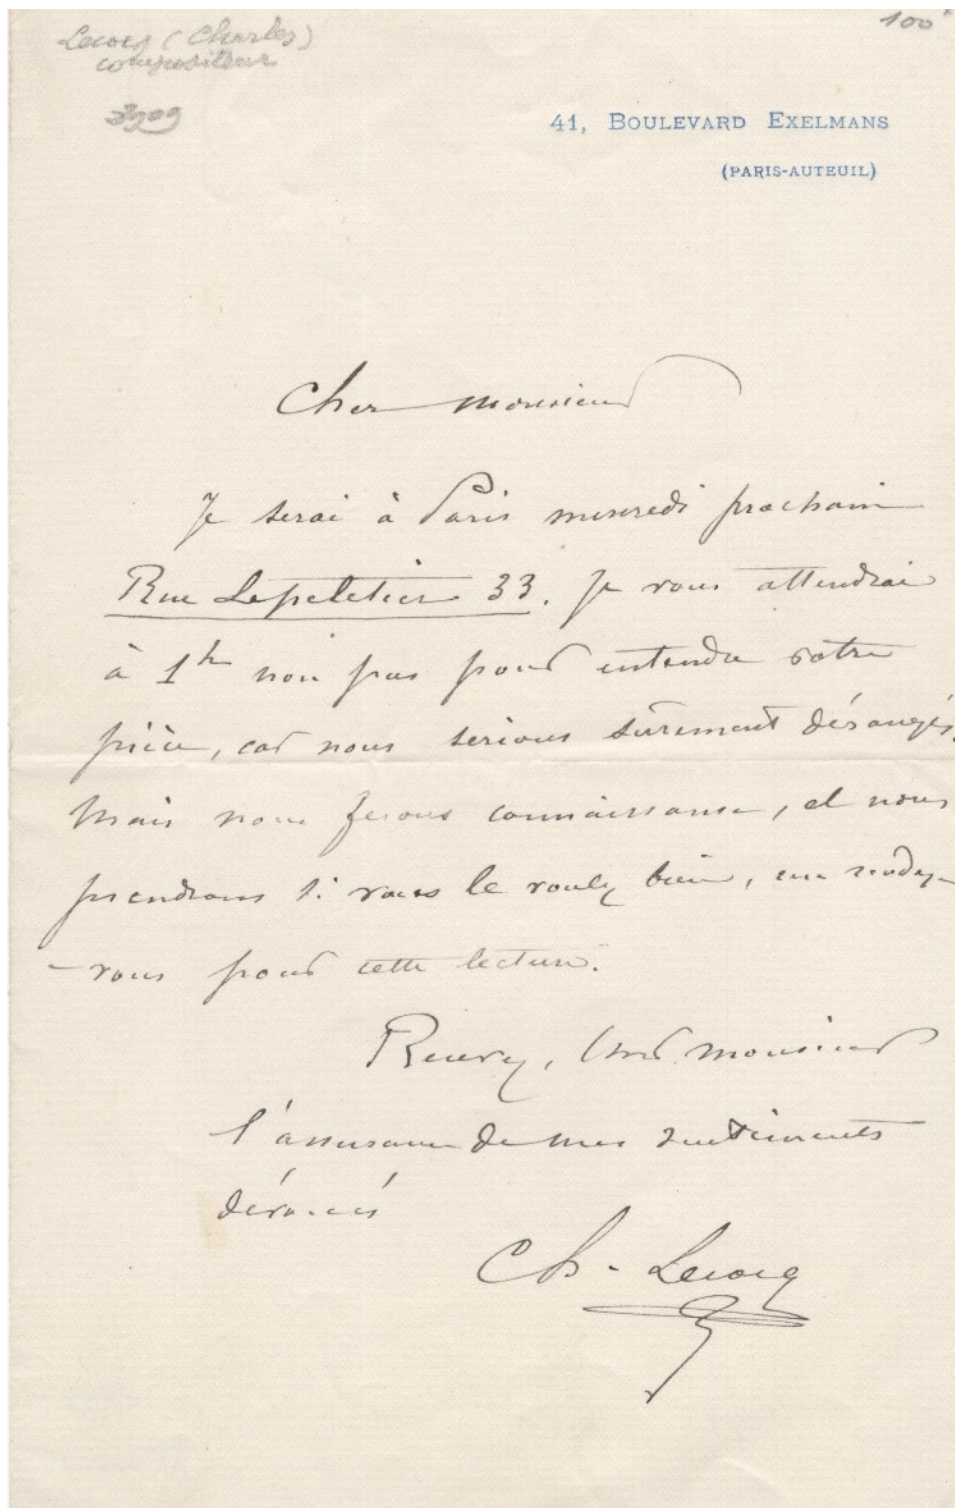 Lecocq (Charles)
compositeur
100
41, BOULEVARD EXELMANS
(PARIS-AUTEUIL)
Cher monsieur
Je serai à Paris mercredi prochain
Rue Lepeletier 33. Je vous attendrai
à 1h non pas pour entendre votre
pièce, car nous serions sûrement dérangés.
Mais nous ferons connaissance, et nous
prendrons si vous le voulez bien, un rendez-
-vous pour cette lecture.
Recevez, cher monsieur
l'assurance de mes sentiments
dévoués
Ch. Lecocq